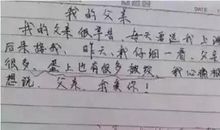 DATE
我的父亲
我的父亲很辛苦，每天要送我上
后来接我，昨天，我仔细一看，父亲
很多，脸上也有很多皱纹，我心
想说，父亲，我爱你！